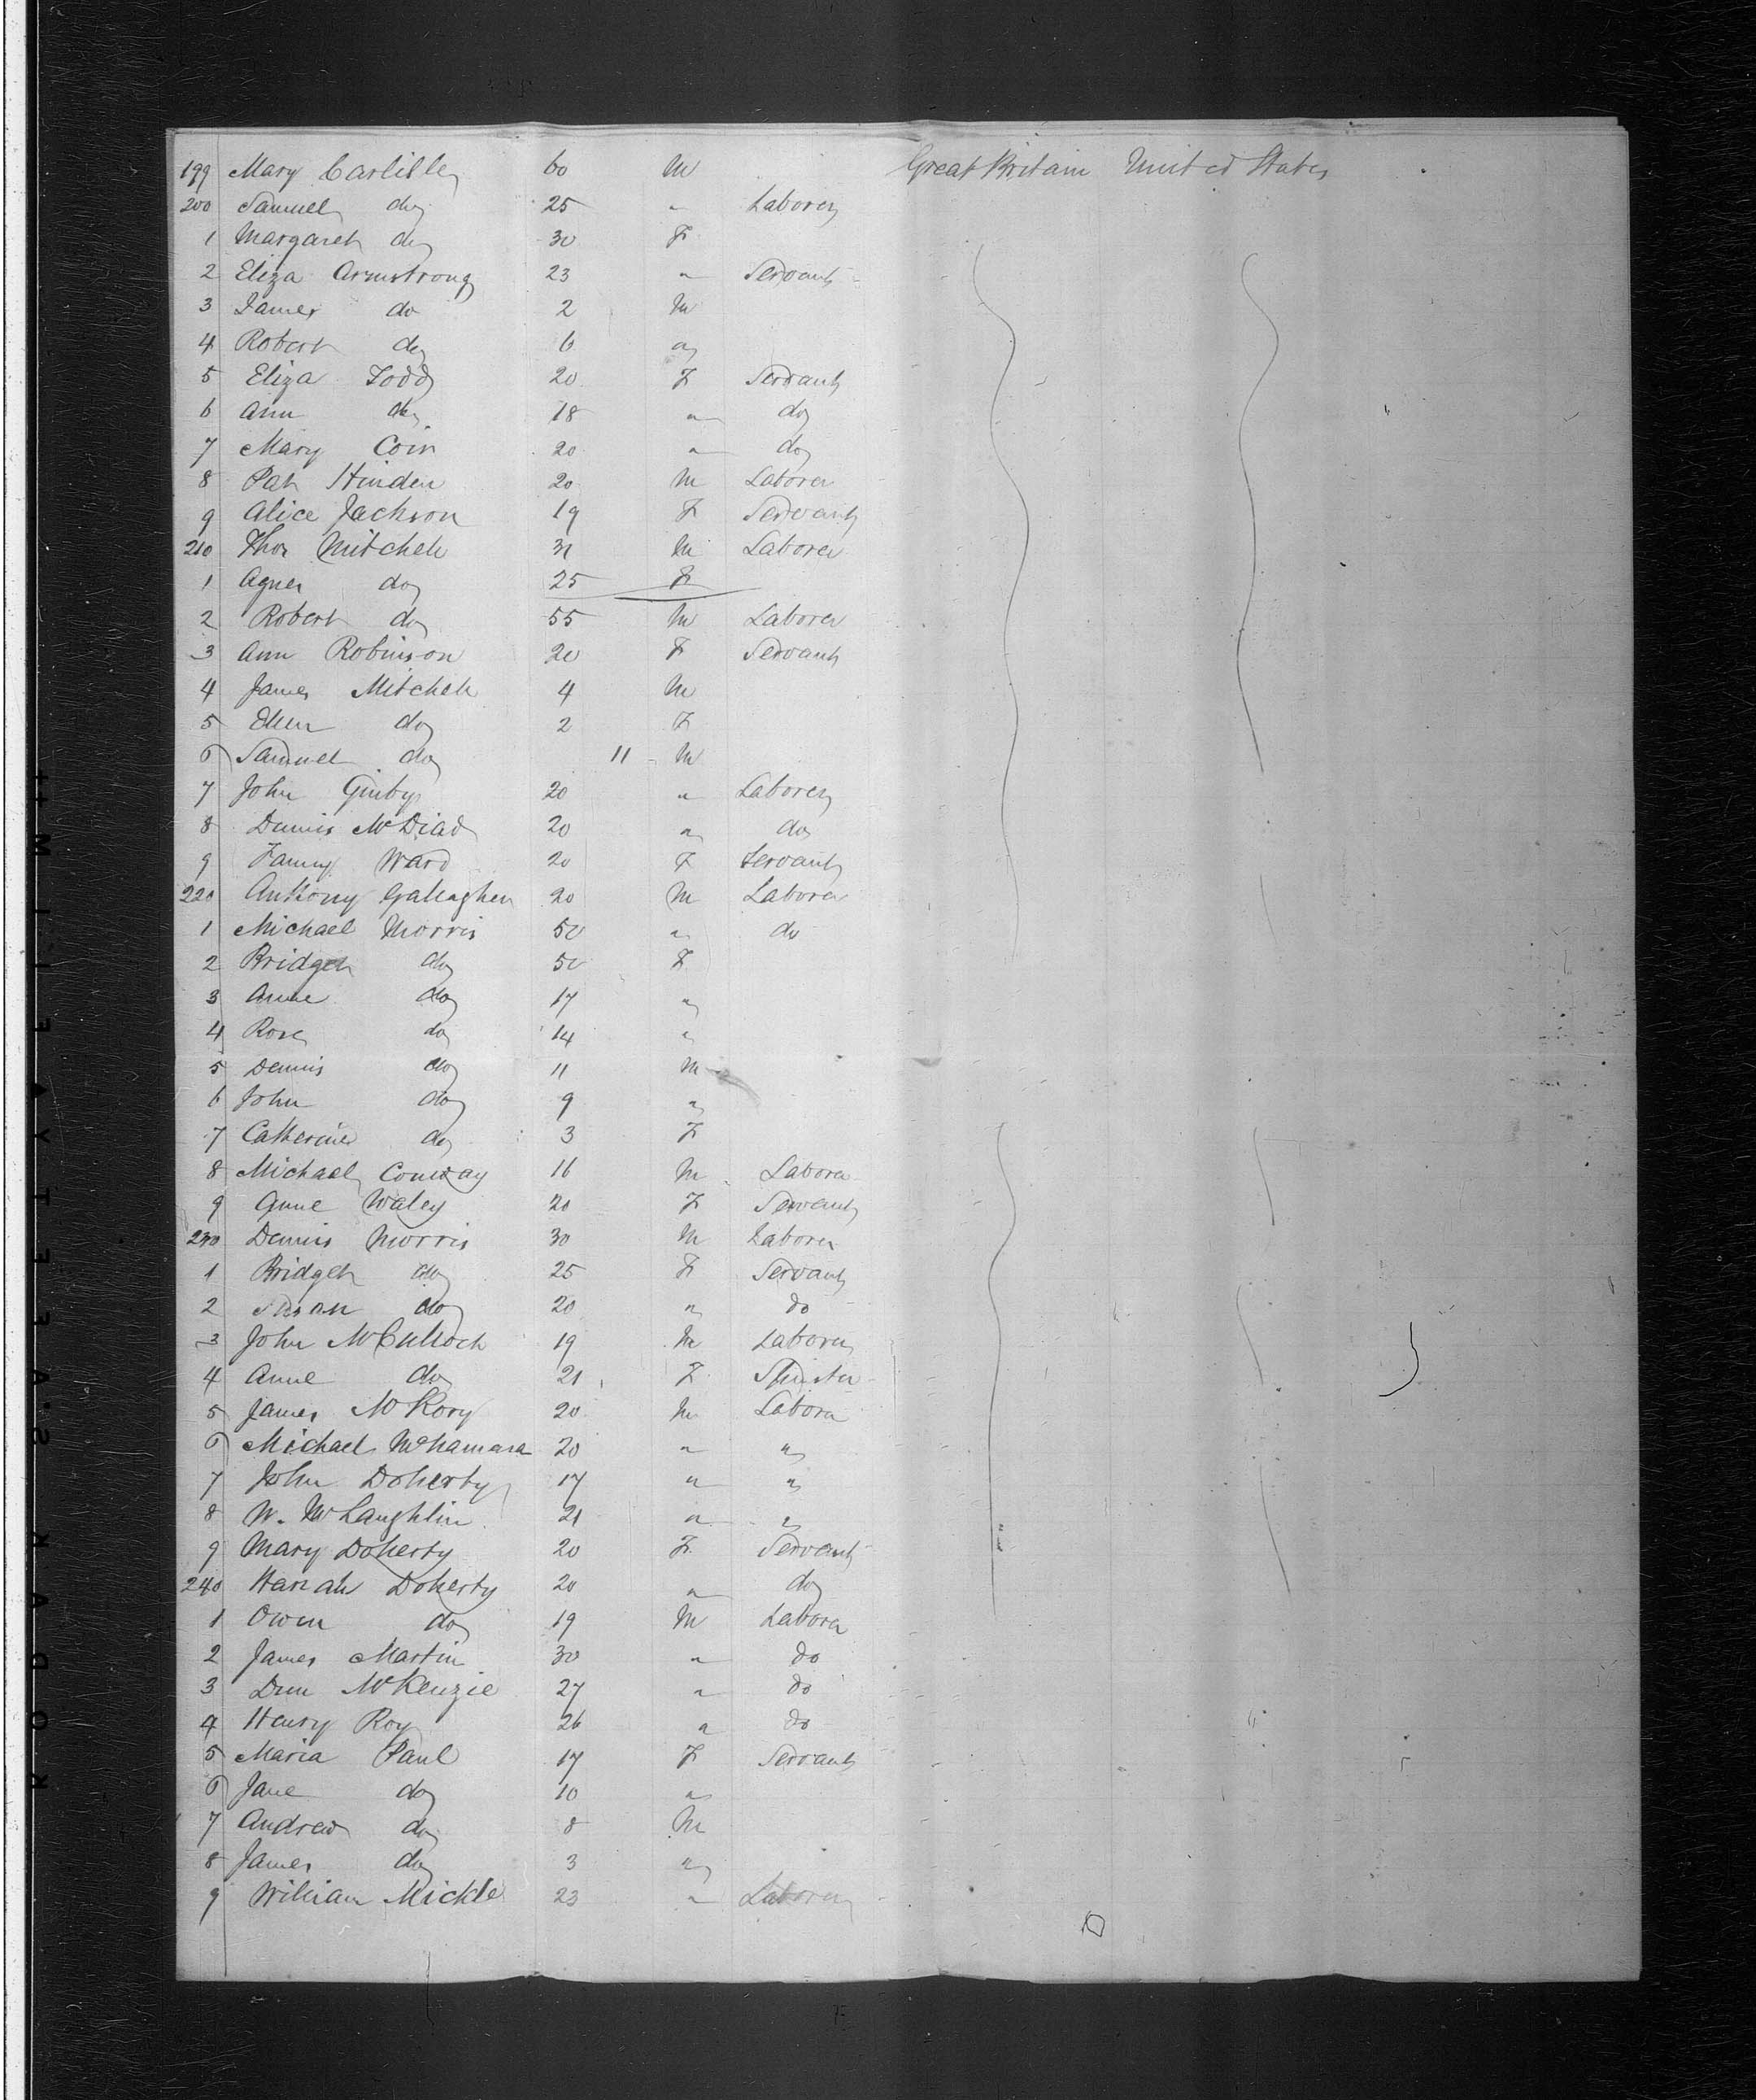 199 Mary Carlisle 60 M Great Britain United States
200 Samuel do 25 " Laborer
1 Margaret do 30 F
2 Eliza Armstrong 23 " Servant
3 James do 2 M
4 Robert do 6 "
5 Eliza Todd 20 F Servant
6 Ann do 18 " do
7 Mary Coin 20 " do
8 Pat Hinden 20 M Laborer
9 Alice Jackson 19 F Servant
210 Thos Mitchell 31 M Laborer
1 Agnes do 25 F
2 Robert do 55 M Laborer
3 Ann Robinson 20 F Servant
4 James Mitchell 4 M
5 Ellen do 2 F
6 Samuel do 11 M
7 John 20 " Laborer
8 Dennis McDiad 20 " do
9 Fanny Ward 20 F Servant
220 Anthony Gallagher 20 M Laborer
1 Michael Morris 50 " do
2 Bridget do 50 F
3 Anne do 17 "
4 Rose do 14 "
5 Dennis do 11 M
6 John do 9 "
7 Catherine do 3 F
8 Michael Conway 16 M Laborer
9 Anne Waley 20 F Servant
230 Dennis Morris 30 M Laborer
1 Bridget do 25 F Servant
2 Susan do 20 " do
3 John McCulloch 19 M Laborer
4 Anne do 21 F Spinster
5 James McRory 20 M Laborer
6 Michael McNamara 20 " "
7 John Doherty 17 " "
8 W. McLaughlin 21 " "
9 Mary Doherty 20 F Servant
240 Hanah Doherty 20 " do
1 Owen do 19 M Laborer
2 James Martin 30 " do
3 McKenzie 27 " do
4 Henry Roy 26 " do
5 Maria Paul 17 F Servant
6 Jane do 10 "
7 Andrew do 8 M
8 James do 3 "
9 William Mickle 23 " Laborer